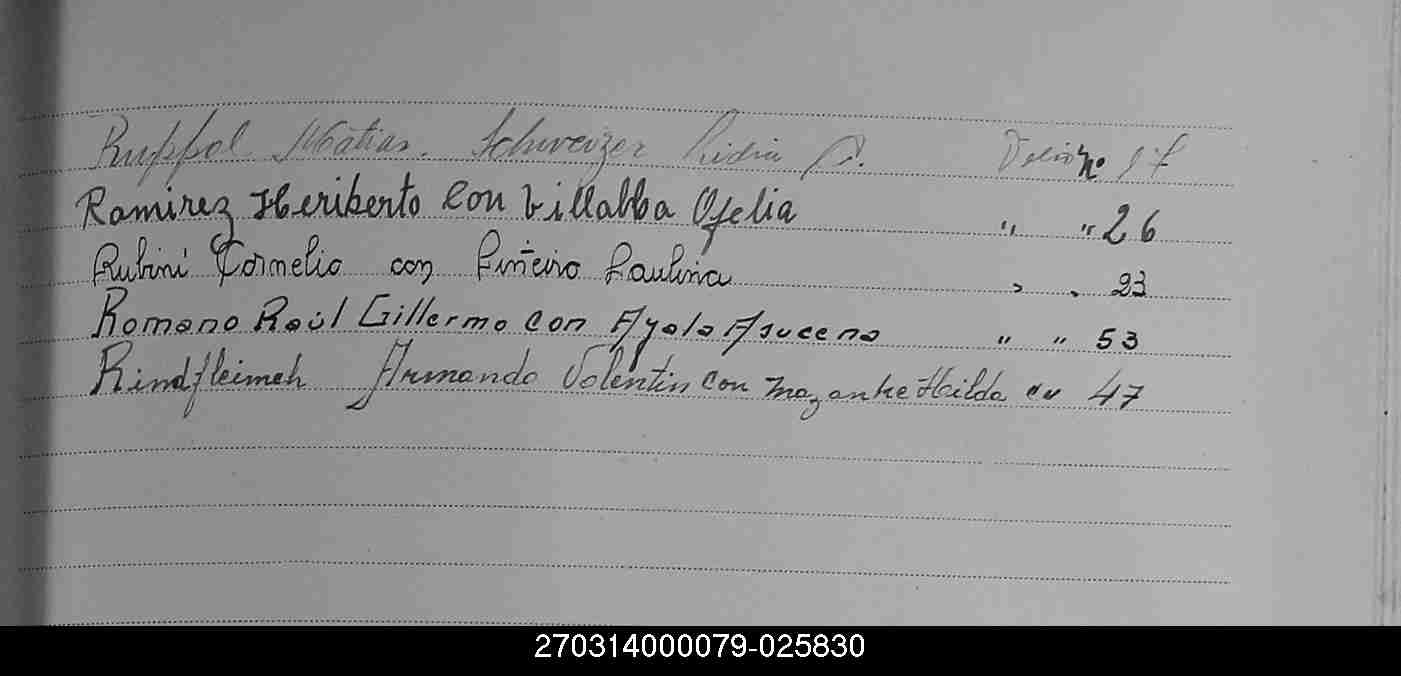 Ruppel Matias. Schweizer Lidia C. Folio nº 17
Ramirez Heriberto Con Villalba Ofelia " " 26
Rubini Cornelio con Piñeiro Paulina " " 23
Romano Raúl Gillermo con Ayala Asucena " " 53
Rindfleimch Armando Valentin con Mazanke Hilda " " 47
270314000079-025830